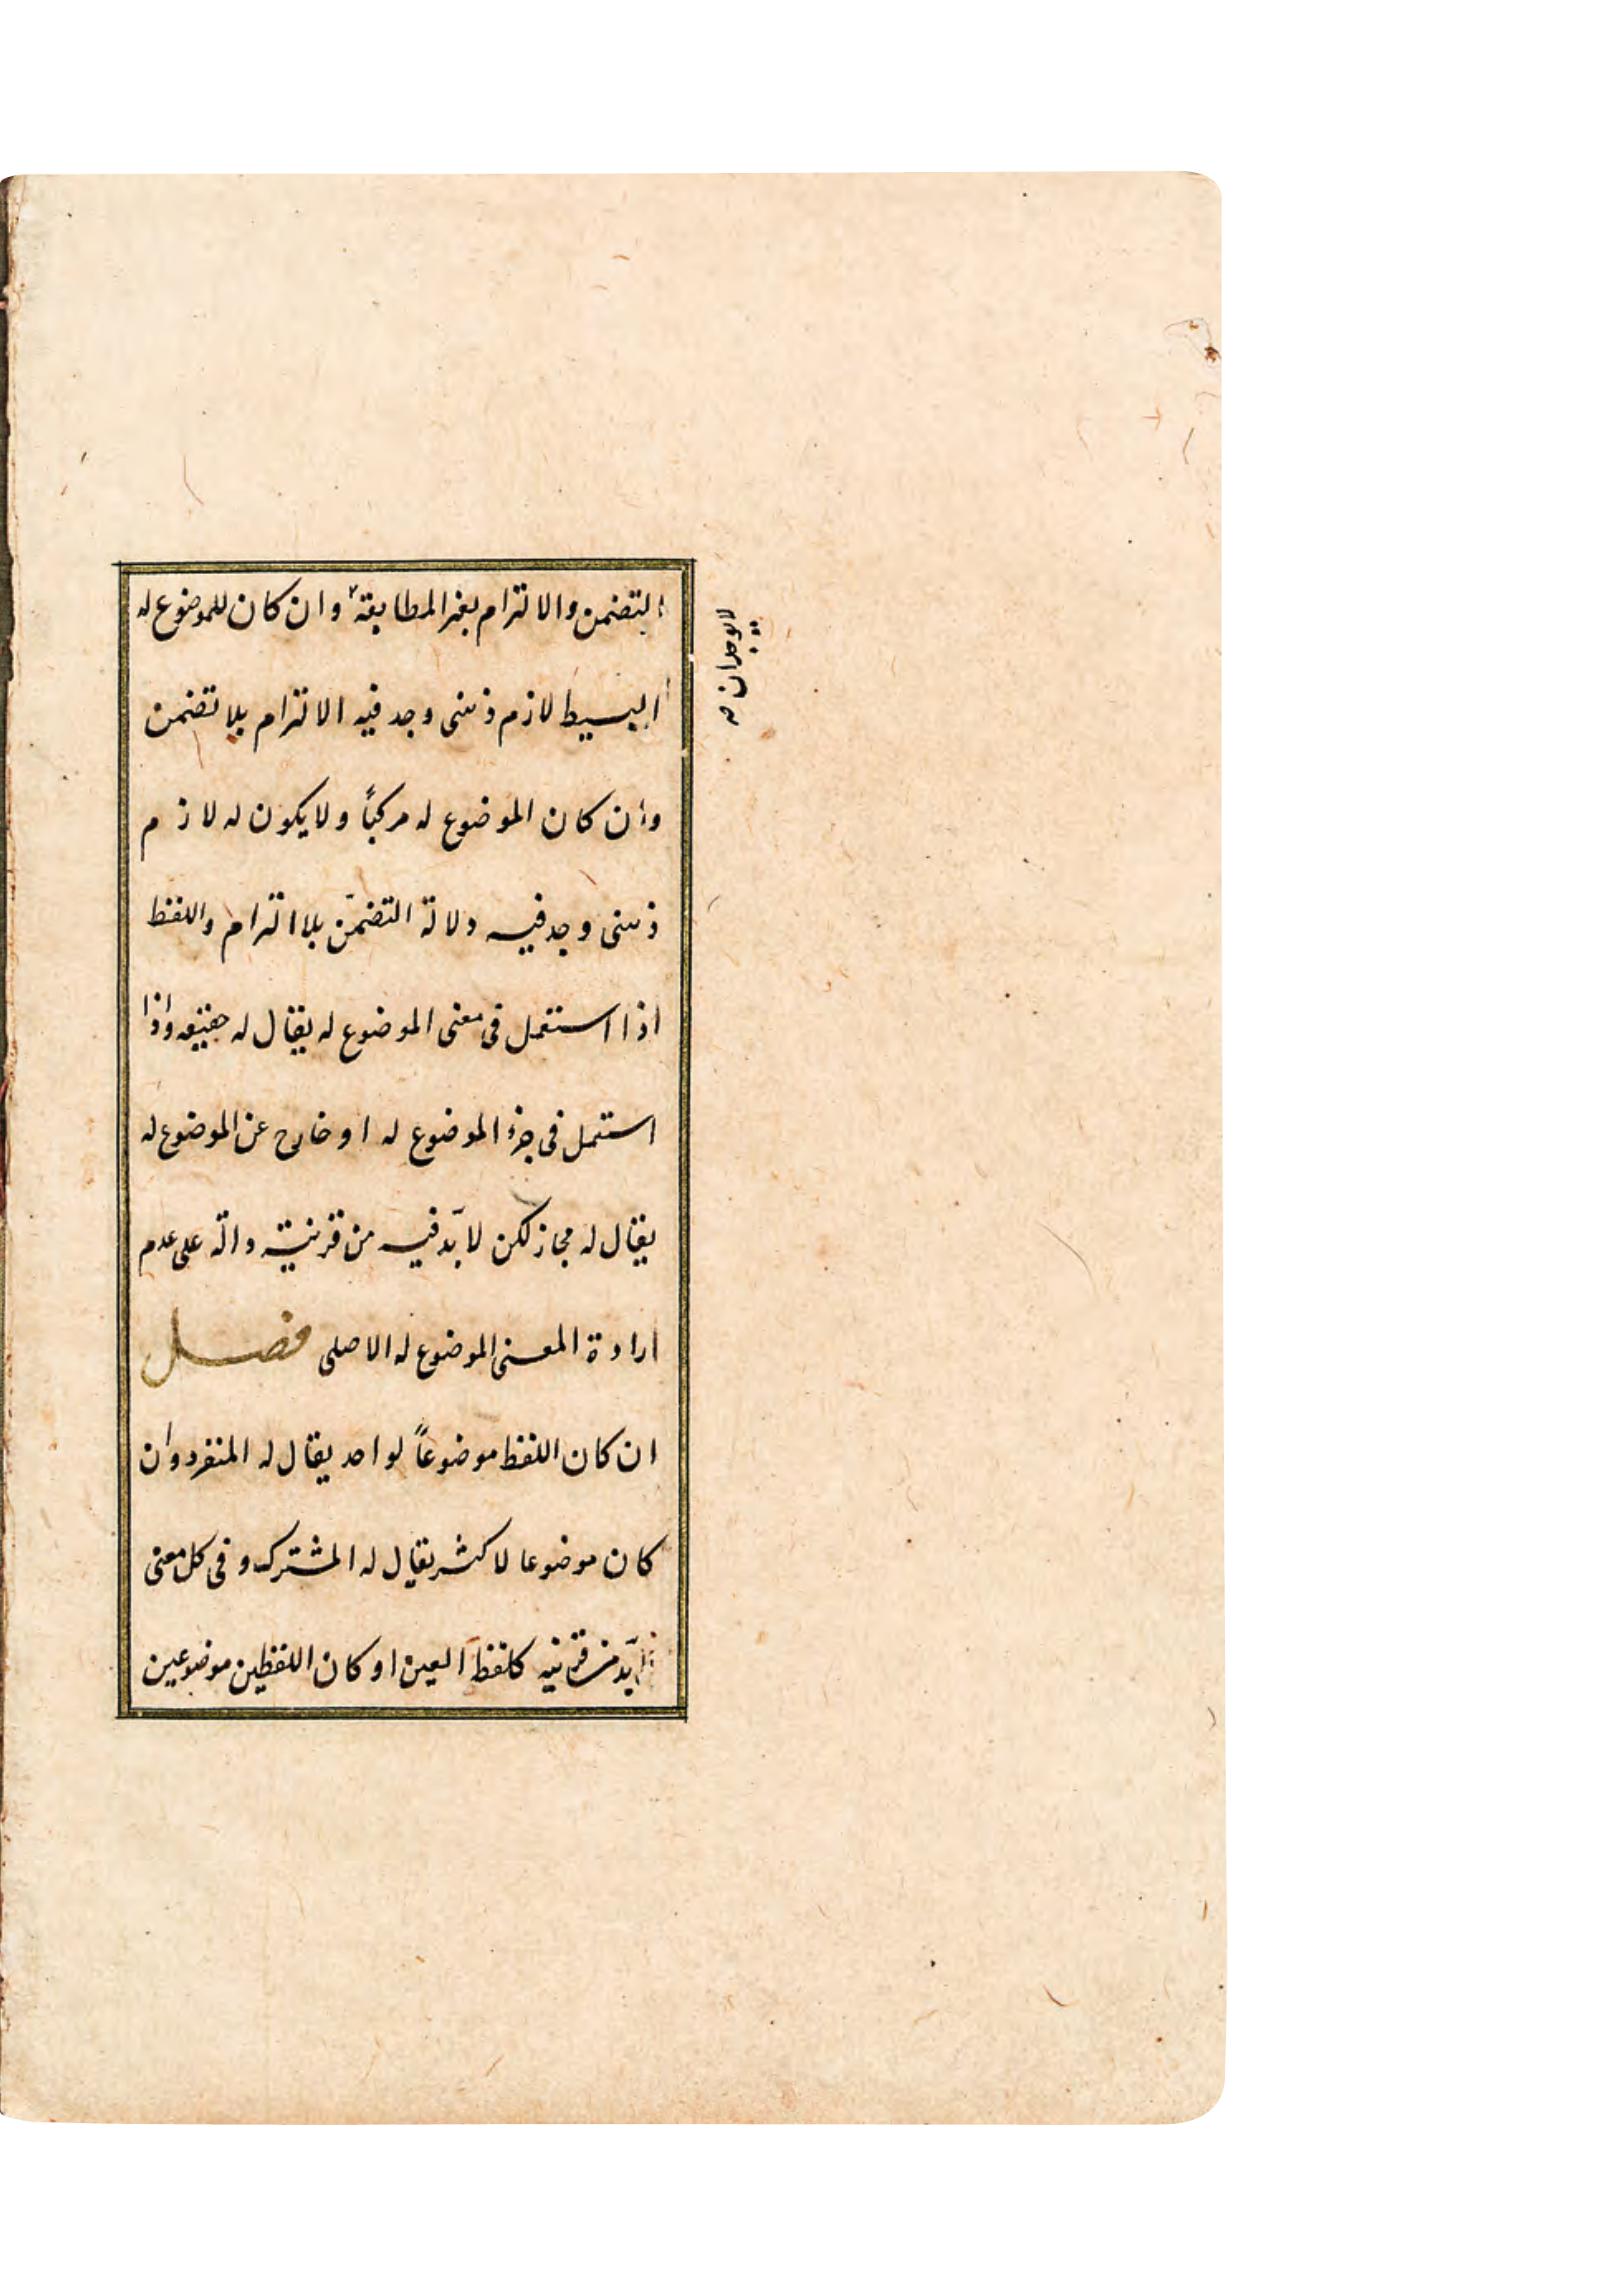 التضمن والالتزام بغير المطابقة وان كان للموضوع له
البسيط لازم ذهنى وجد فيه الالتزام بلا تضمن
وان كان الموضوع له مركباً ولا يكون له لازم
ذهنى وجد فيه دلالة التضمّن بلا التزام واللفظ
اذا استعمل فى معنى الموضوع له يقال له حقيقه واذا
استعمل فى جزء الموضوع له او خارج عن الموضوع له
يقال له مجاز لكن لا بدّ فيه من قرينة دالّة على عدم
ارادة المعنى الموضوع له الاصلى فصل
ان كان اللفظ موضوعاً لواحد يقال له المنفرد وان
كان موضوعا لاكثر يقال له المشترك و فى كل معنى
لا بدّ من قرينه كلفظ العين او كان اللفظين موضوعين
لا يوجدان